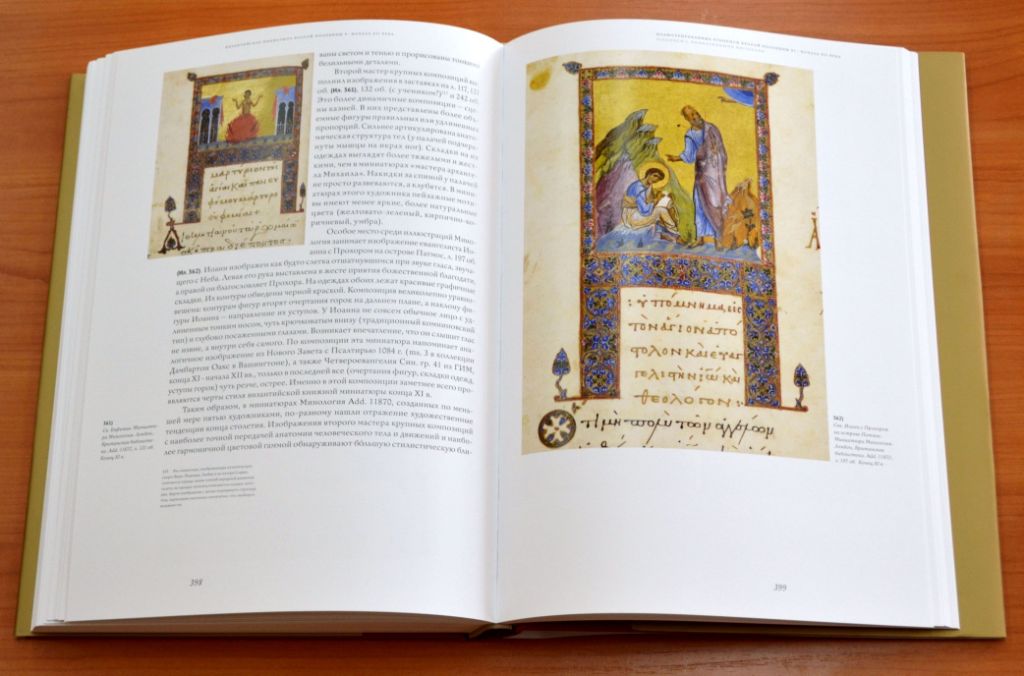 ваны светом и тенью и прорисованы тонкими
белильными деталями.
Второй мастер крупных композиций вы-
полнил изображения в заставках на л. 117, 121
об. (Ил. 561), 132 об. (с учеником?) и 242 об.
Это более динамичные композиции – сце-
ны казней. В них представлены более объ-
емные фигуры правильных или удлиненных
пропорций. Сильнее артикулирована анато-
мическая структура тел (у палачей подчерк-
нуты мышцы на икрах ног). Складки на их
одеждах выглядят более тяжелыми и жест-
кими, чем в миниатюрах «мастера арханге-
ла Михаила». Накидки за спиной у палачей
не просто развеваются, а клубятся. В мини-
атюрах этого художника пейзажные моти-
вы имеют менее яркие, более натуральные
цвета (желтовато-зеленый, кирпично-ко-
ричневый, умбра).
Особое место среди иллюстраций Мино-
логия занимает изображение евангелиста Ио-
анна с Прохором на острове Патмос, л. 197 об.
(Ил. 562). Иоанн изображен как будто слегка отшатнувшимся при звуке гласа, звуча-
щего с Неба. Левая его рука выставлена в жесте приятия божественной благодати,
а правой он благословляет Прохора. На одеждах обоих лежат красивые графичные
складки. Их контуры обведены черной краской. Композиция великолепно уравно-
вешена: контурам фигур вторят очертания горок на дальнем плане, а наклону фи-
гуры Иоанна – направление их уступов. У Иоанна не совсем обычное лицо с уд-
линенным тонким носом, чуть крючковатым внизу (традиционный комниновский
тип) и глубоко посаженными глазами. Возникает впечатление, что он слышит глас
не извне, а внутри себя самого. По композиции эта миниатюра напоминает ана-
логичное изображение из Нового Завета с Псалтирью 1084 г. (ms. 3 в коллекции
Дамбартон Оакс в Вашингтоне), а также Четвероевангелия Син. гр. 41 из ГИМ,
конца XI - начала XII вв., только в последней все (очертания фигур, складки одежд,
уступы горок) чуть резче, острее. Именно в этой композиции заметнее всего про-
являются черты стиля византийской книжной миниатюры конца XI в.
Таким образом, в миниатюрах Минология Add. 11870, созданных по мень-
шей мере пятью художниками, по-разному нашли отражение художественные
тенденции конца столетия. Изображения второго мастера крупных композиций
с наиболее точной передачей анатомии человеческого тела и движений и наибо-
лее гармоничной цветовой гаммой обнаруживают большую стилистическую бли-
561)
Св. Евфимия. Миниатю-
ра Минология. Лондон,
Британская библиоте-
ка. Add. 11870, л. 121 об.
Конец XI в.
398
562)
Свв. Иоанн и Прохор
на острове Патмос.
Миниатюра Минология.
Лондон, Британская
библиотека. Add. 11870,
л. 197 об. Конец XI в.
399